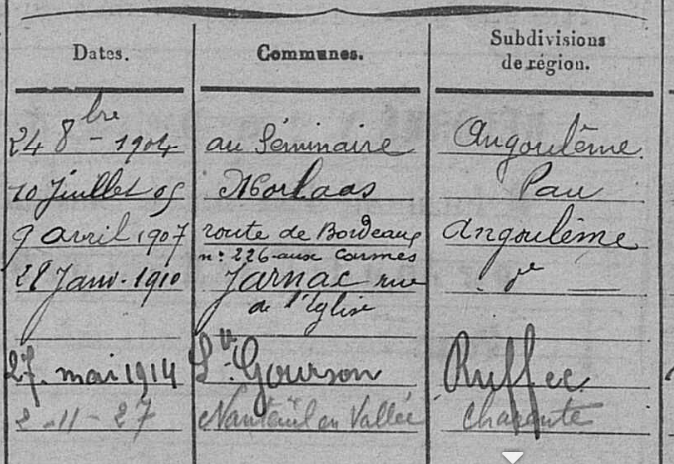 Dates. Communes. Subdivisions de région.
24 8bre - 1904 au Séminaire Angoulême
10 Juillet 05 Morlaas Pau
9 avril 1907 route de Bordeaux Angoulême
n° 226 aux Carmes
28 Janv. 1910 Jarnac rue de
de l'Eglise
27. mai 1914 St. Gourson Ruffec
2-11-27 Nanteuil en Vallée Charente